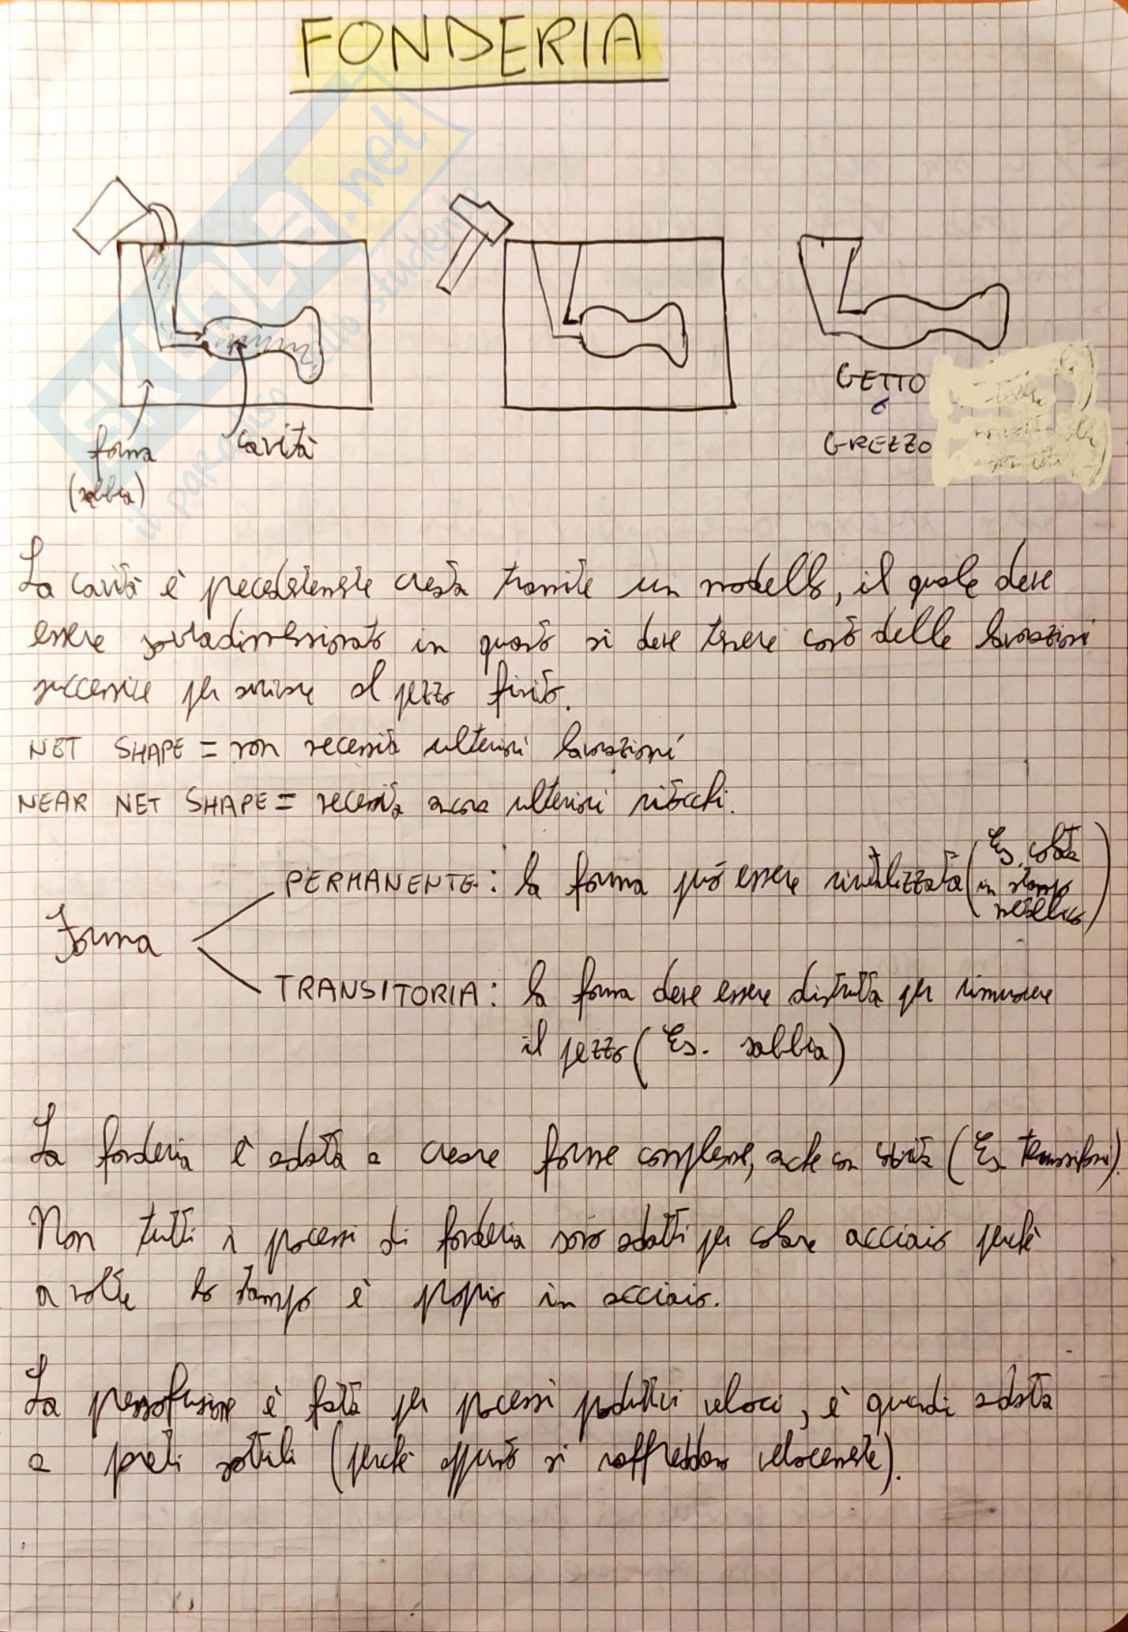 FONDERIA
forma
(sabbia)
cavità
GETTO
o
GREZZO
La cavità è precedentemente creata tramite un modello, il quale deve
essere sovradimensionato in quanto si deve tenere conto delle lavorazioni
successive per arrivare al pezzo finito.
NET SHAPE = non necessita ulteriori lavorazioni
NEAR NET SHAPE = necessita ancora ulteriori ritocchi.
Forma
PERMANENTE: la forma può essere riutilizzata (Es. colata
in stampo
metallico)
TRANSITORIA: la forma deve essere distrutta per rimuovere
il pezzo (Es. sabbia)
La fonderia è adatta a creare forme complesse, anche con cavità (Es. termosifoni).
Non tutti i processi di fonderia sono adatti per colare acciaio perché
a volte lo stampo è proprio in acciaio.
La pressofusione è fatta per processi produttivi veloci, è quindi adatta
a pareti sottili (perché appunto si raffreddano velocemente).
SKUOLA.net
il paradiso dello studente